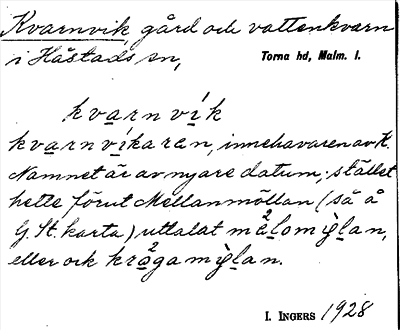 Kvarnvik, gård och vattenkvarn
i Håstads sn, Torna hd, Malm. l.
kvarnvík
kvarnvíkaren, innehavaren av K.
Namnet är av nyare datum; stället
hette förut Mellanmöllan (så å
G. St. karta) uttalat
eller ock
I. INGERS 1928